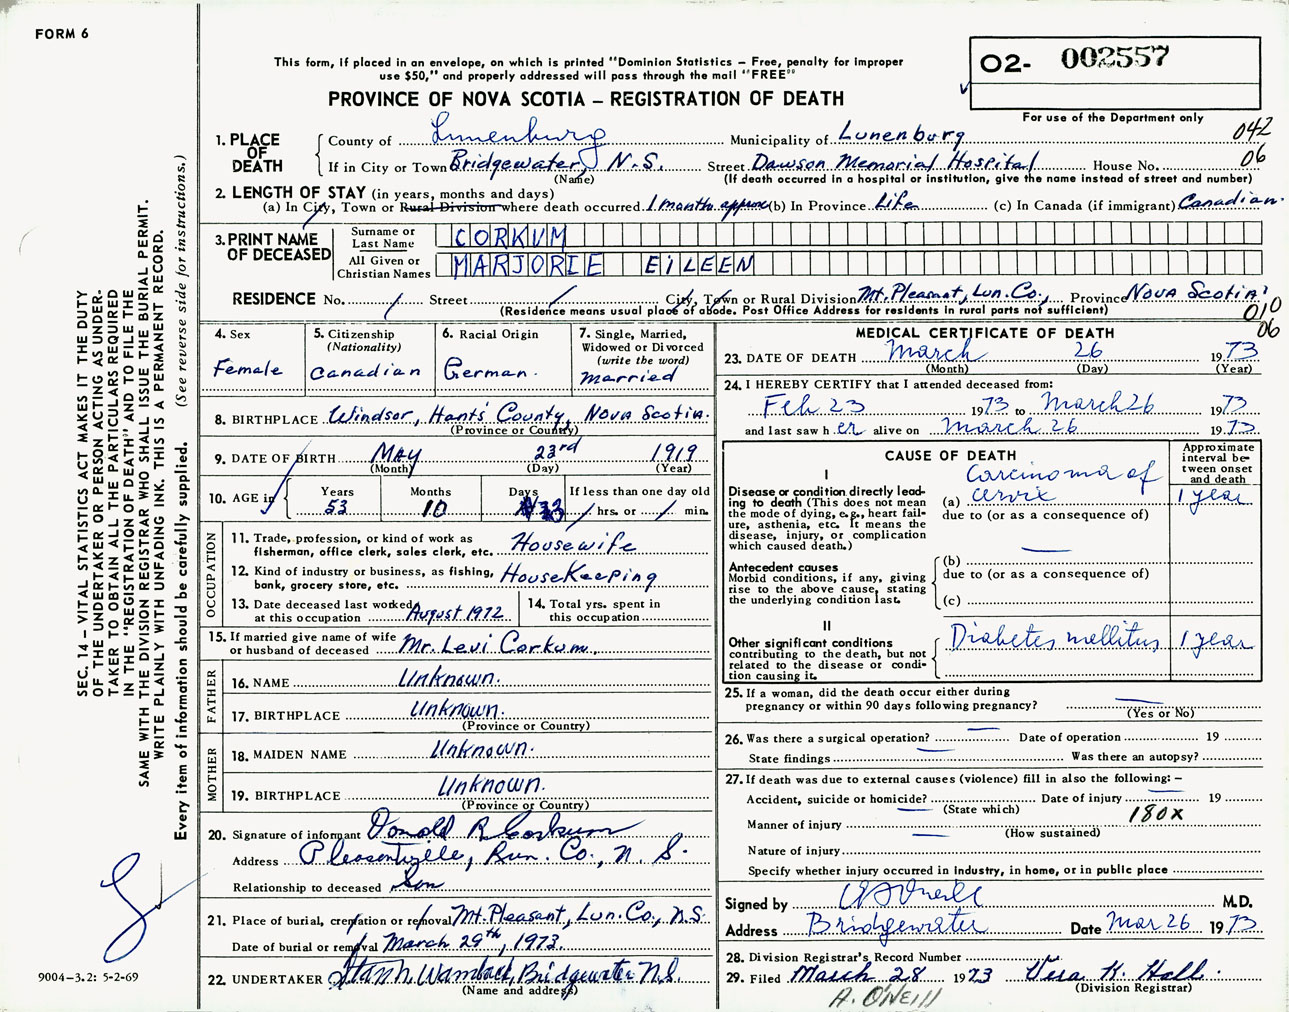 FORM 6
This form, if placed in an envelope, on which is printed "Dominion Statistics – Free, penalty for improper
use $50," and properly addressed will pass through the mail "FREE"
PROVINCE OF NOVA SCOTIA – REGISTRATION OF DEATH
O2- 002557
For use of the Department only
042
06
1. PLACE OF DEATH
County of Lunenburg Municipality of Lunenburg
If in City or Town Bridgewater, N.S. Street Dawson Memorial Hospital House No.
(Name) (If death occurred in a hospital or institution, give the name instead of street and number)
2. LENGTH OF STAY (in years, months and days)
(a) In City, Town or Rural Division where death occurred 1 month approx (b) In Province Life (c) In Canada (if immigrant) Canadian
3. PRINT NAME OF DECEASED
Surname or Last Name CORKUM
All Given or Christian Names MARJORIE EILEEN
RESIDENCE No. / Street / City, Town or Rural Division Mt. Pleasant, Lun. Co., Province Nova Scotia
(Residence means usual place of abode. Post Office Address for residents in rural parts not sufficient)
010
06
4. Sex
Female
5. Citizenship
(Nationality)
Canadian
6. Racial Origin
German.
7. Single, Married,
Widowed or Divorced
(write the word)
Married
8. BIRTHPLACE Windsor, Hants County, Nova Scotia.
(Province or Country)
9. DATE OF BIRTH MAY 23rd 1919
(Month) (Day) (Year)
10. AGE in
Years Months Days If less than one day old
53 10 hrs. or min.
OCCUPATION
11. Trade, profession, or kind of work as
fisherman, office clerk, sales clerk, etc. Housewife
12. Kind of industry or business, as fishing,
bank, grocery store, etc. HouseKeeping
13. Date deceased last worked
at this occupation August 1972
14. Total yrs. spent in
this occupation
15. If married give name of wife
or husband of deceased Mr. Levi Corkum.
FATHER
16. NAME Unknown.
17. BIRTHPLACE Unknown.
(Province or Country)
MOTHER
18. MAIDEN NAME Unknown.
19. BIRTHPLACE Unknown.
(Province or Country)
20. Signature of informant Donald R Corkum
Address Pleasantville, Lun. Co., N. S.
Relationship to deceased Son
21. Place of burial, cremation or removal Mt. Pleasant, Lun. Co., N.S.
Date of burial or removal March 29th, 1973.
22. UNDERTAKER Wamback, Bridgewater N.S.
(Name and address)
MEDICAL CERTIFICATE OF DEATH
23. DATE OF DEATH March 26 1973
(Month) (Day) (Year)
24. I HEREBY CERTIFY that I attended deceased from:
Feb 23 1973 to March 26 1973
and last saw her alive on March 26 1973
CAUSE OF DEATH
Approximate
interval be-
tween onset
and death
I
Disease or condition directly lead-
ing to death (This does not mean
the mode of dying, e.g., heart fail-
ure, asthenia, etc. It means the
disease, injury, or complication
which caused death.)
Carcinoma of
(a) cervix 1 year
due to (or as a consequence of)
(b)
due to (or as a consequence of)
(c)
Antecedent causes
Morbid conditions, if any, giving
rise to the above cause, stating
the underlying condition last.
II
Other significant conditions
contributing to the death, but not
related to the disease or condi-
tion causing it.
Diabetes mellitus 1 year
25. If a woman, did the death occur either during
pregnancy or within 90 days following pregnancy?
(Yes or No)
26. Was there a surgical operation? Date of operation 19
State findings Was there an autopsy?
27. If death was due to external causes (violence) fill in also the following: –
Accident, suicide or homicide? Date of injury 19
(State which)
180x
Manner of injury
(How sustained)
Nature of injury
Specify whether injury occurred in industry, in home, or in public place
Signed by O'Neill M.D.
Address Bridgewater Date Mar 26 1973
28. Division Registrar's Record Number
29. Filed March 28 1973 Vera K. Hall.
(Division Registrar)
A. O'NEILL
SEC. 14 – VITAL STATISTICS ACT MAKES IT THE DUTY
OF THE UNDERTAKER OR PERSON ACTING AS UNDER-
TAKER TO OBTAIN ALL THE PARTICULARS REQUIRED
IN THE "REGISTRATION OF DEATH" AND TO FILE THE
SAME WITH THE DIVISION REGISTRAR WHO SHALL ISSUE THE BURIAL PERMIT.
WRITE PLAINLY WITH UNFADING INK. THIS IS A PERMANENT RECORD.
Every item of information should be carefully supplied. (See reverse side for instructions.)
9004-3.2: 5-2-69